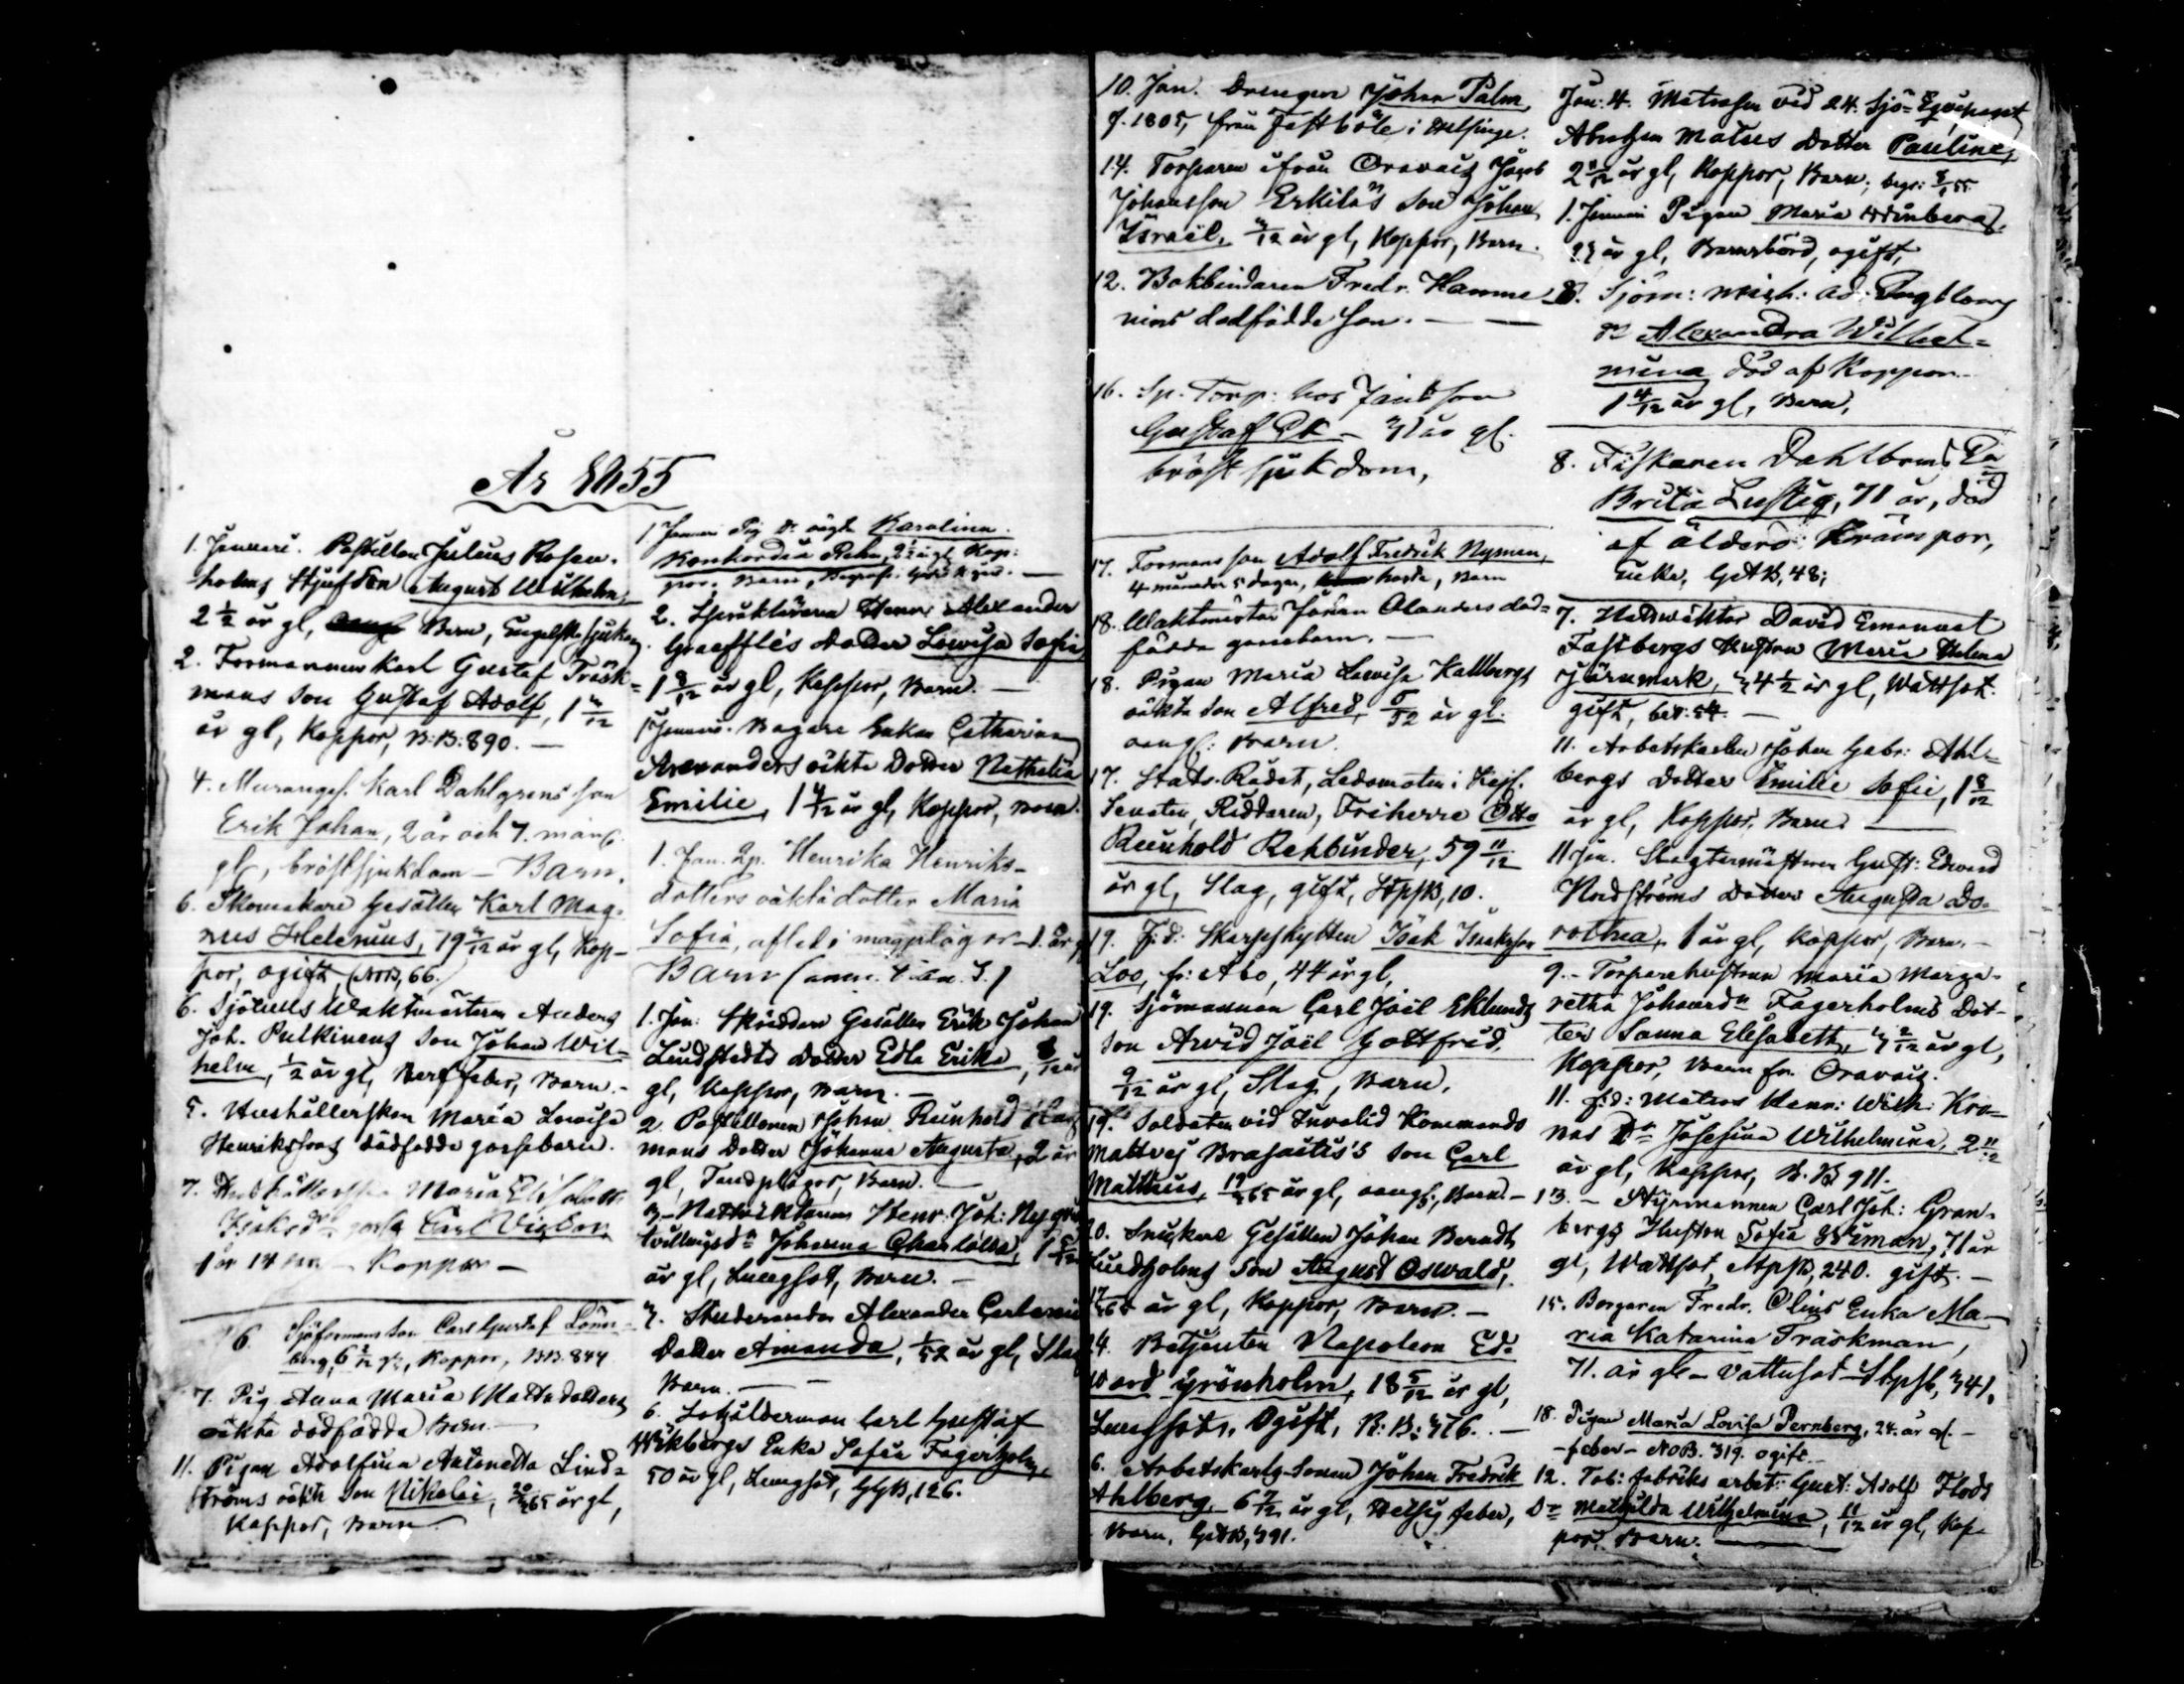 År 1855
1. Januari. Postillon Julius Rosen-
holms Styfson August Wilhelm,
2 1/2 år gl, Barn, Engelska sjukan
2. Formannen Karl Gustaf Träsk-
mans son Gustaf Adolf, 1
år gl, Koppor, B:B: 890. —
4. Muraregs. Karl Dahlgrens son
Erik Johan, 2 år och 7. mån.
gl, bröstsjukdom — Barn.
6. Skomakare Gesällen Karl Mag-
nus Helenius, 19 år gl, Kop-
por, ogift, 66.
6. Sjötulls Waktmästaren Anders
Joh. Pulkinens son Johan Wil-
helm, 1/2 år gl, Nerffeber, Barn. -
5. Hushållerskan Maria Lovisa
Henrikssons dödfödda gossebarn.
7. Hushållerskan Maria Elisabeth
Isaksdr Carl Victor
1 år 14 — Koppor —
6. Sjöformans son Carl Gustaf Lönn-
berg, 6 Koppor, BB. 844
7. Pig. Anna Maria Mattsdotters
oäkta dödfödda Barn —
11. Pigan Adolfina Antonetta Lind-
ströms oäkta son Nikolai, 20/365 år gl,
Koppor, Barn
1. Januari Pig. Dr. oägta Karolina
Konkordia Rehn, 2 1/2 år gl. Kop-
por, Barn,
2. Språkläraren Henr. Alexander
Graefflés Dotter Lovisa Sofia
1 8/12 år gl, Koppor, Barn. —
1 Januari. Bagare Enkan Catharina
Alexanders oäkta Dotter Nathalia
Emilie, 1 år gl, Koppor, Barn.
1. Jan. Qp. Henrika Henriks-
dotters oäkta dotter Maria
Sofia, afled i magplågor — 1. år gl
Barn (anm. 4. Jan. S.)
1. Jan: Skrädders Gesällen Erik Johan
Lindstedts dotter Edla Erika, 8/12 år
gl, Koppor, Barn. —
2. Postillonen Johan Reinhold
mans Dotter Johanna Augusta, 2 år
gl, Tandplågor, Barn. —
3. — Nattväktaren Henr. Joh:
tvillingsdr Johanna Charlotta, 1
år gl, Lungsot, Barn. —
7. Studeranden Alexander
Dotter Amanda, 1/52 år gl, Slag
Barn. —
6. Lotsålderman Carl Gustaf
Wikbergs Enka Sofia Fagerholm,
50 år gl, Lungsot, GGB, 126.
10. Jan. Drengen Johan Palm
f. 1805, från Fastböle i Helsinge.
14. Torparen ifrån Oravais Jacob
Johansson Erkiläs son Johan
Israël, år gl, Koppor, Barn.
12. Bokbindaren Fredr. Hamme-
nins dödfödde son. —
16. Sp. Torp: hos Jansson
Gustaf Ek — 71 år gl.
bröst sjukdom,
17. Formans son Adolf Fredrik Nyman,
4 månader 5 dagar, hosta, Barn
18. Waktmästar Johan Olanders död-
födda gossebarn. —
18. Pigan Maria Lovisa Kallbergs
oäkta son Alfred, 5/52 år gl.
oangf: Barn.
17. Stats-Rådet, Ledamoten i Kejs.
Senaten, Riddaren, Friherre Otto
Reinhold Rehbinder, 59 11/12
år gl, Slag, gift, StpsB, 10.
19. F.d. Skarpskytten Isak Isaksson
Loo, fr: Åbo, 44 år gl,
19. Sjömannen Carl Joël Eklunds
son Arvid Joël Gottfrid,
9/12 år gl, Slag, Barn.
19. Soldaten vid Invalid Kommando
Mattvej Brasaitis's son Carl
Matthias, 19/365 år gl, oangf:, Barn. —
20. Snickare Gesällen Johan Berndt
Lindholms son August Oswald,
17/365 år gl, Koppor, Barn. —
24. Betjenten Napoleon Ed-
ward Grönholm, 18 5/12 år gl,
Lungsot, Ogift, B: B: 376. —
6. Arbetskarls-Sonen Johan Fredrik
Ahlberg, 6 7/12 år gl, Hetsig feber,
Barn, 391.
Jan: 4. Matrosen vid 24. Sjö-Equipaget
Abraham Matus dotter Pauline,
2 år gl, Koppor, Barn; begr:
1. Januari Pigan Maria
23 år gl, Barnsbörd, ogift,
8. Sjöm: Mich: Ad: Engbloms
Dr Alexandra Wilhel-
mina död af Koppor
1 4/12 år gl, Barn.
8. Fiskaren Dahlboms Ea
Brita Lustig, 71 år, död
af ålderd: Krämpor,
enka, 48;
7. Nattväktar David Emanuel
Fastbergs Hustru Maria Helena
Järnmark, 34 1/2 år gl, Wattsot.
gift, 54. —
11. Arbetskarlen Johan Gabr: Ahl-
bergs dotter Emilie Sofie, 1 8/12
år gl, Koppor, Barn. —
11 Jan. Slagtarmästaren Gust: Edvard
Nordströms dotter Augusta Do-
rothea, 1 år gl, Koppor, Barn. —
9. — Torparehustrun Maria Marga-
retha Johansdr Fagerholms Dot-
ter Sanna Elisabeth, 3 2/12 år gl,
Koppor, Barn fr. Oravais.
11. f.d: Matros Henr: Wilh: Kro-
nas Dr Josefina Wilhelmina, 2 11/12
år gl, Koppor, B. B 911.
13. — Styrmannen Carl Joh: Gran-
bergs Hustru Sofia Wiman, 71 år
gl, Wattsot, StpsB, 240. gift. —
15. Borgaren Fredr. Olins Enka Ma-
ria Katarina Träskman,
71. år gl — Vattusot — StpsB, 341.
18. Pigan Maria Lovisa Pernberg, 24. år gl. —
— feber — NOB. 319. ogift —
12. Tob: fabriks arbet: Gust: Adolf Flods
Dr Mathilda Wilhelmina, 11/12 år gl, Kop-
por. Barn. —